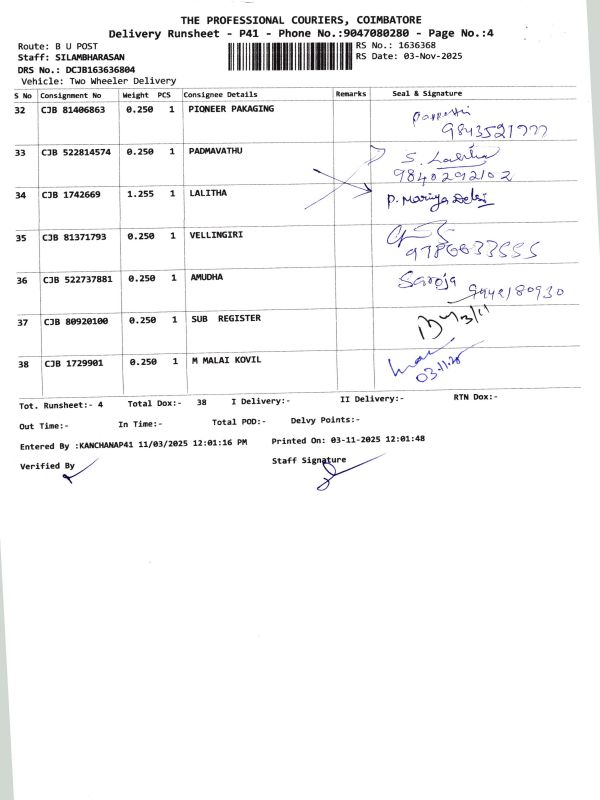 THE PROFESSIONAL COURIERS, COIMBATORE
Delivery Runsheet - P41 - Phone No.:9047080280 - Page No.:4
Route: B U POST RS No.: 1636368
Staff: SILAMBHARASAN RS Date: 03-Nov-2025
DRS No.: DCJB163636804
Vehicle: Two Wheeler Delivery
S No Consignment No Weight PCS Consignee Details Remarks Seal & Signature
32 CJB 81406863 0.250 1 PIONEER PAKAGING
33 CJB 522814574 0.250 1 PADMAVATHU S. Lalitha
9840292102
34 CJB 1742669 1.255 1 LALITHA P. Mariya Delsi
35 CJB 81371793 0.250 1 VELLINGIRI
36 CJB 522737881 0.250 1 AMUDHA Saroja
37 CJB 80920100 0.250 1 SUB REGISTER
38 CJB 1729901 0.250 1 M MALAI KOVIL
03-11-25
Tot. Runsheet:- 4 Total Dox:- 38 I Delivery:- II Delivery:- RTN Dox:-
Out Time:- In Time:- Total POD:- Delvy Points:-
Entered By :KANCHANAP41 11/03/2025 12:01:16 PM Printed On: 03-11-2025 12:01:48
Verified By Staff Signature